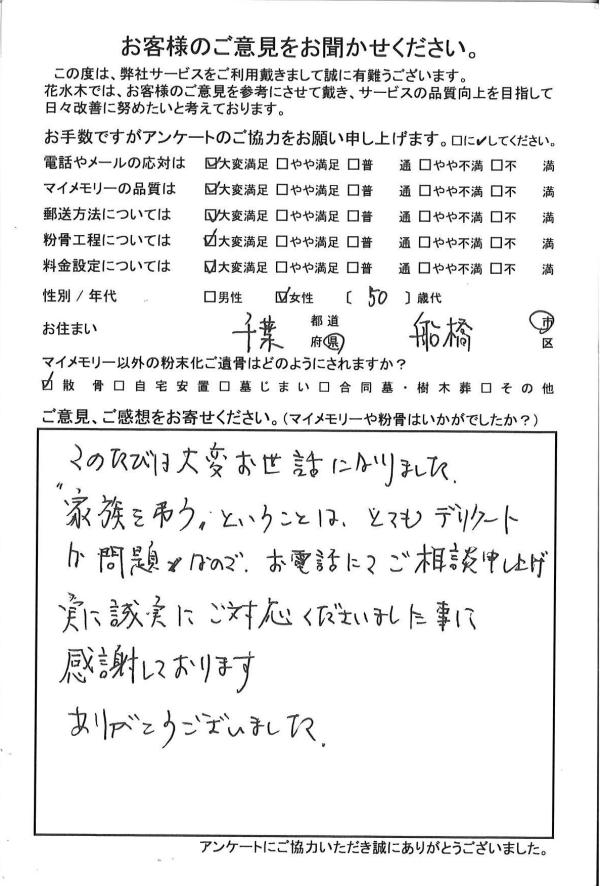 お客様のご意見をお聞かせください。
この度は、弊社サービスをご利用戴きまして誠に有難うございます。
花水木では、お客様のご意見を参考にさせて戴き、サービスの品質向上を目指して
日々改善に努めたいと考えております。
お手数ですがアンケートのご協力をお願い申し上げます。□に✔してください。
電話やメールの応対は ☑大変満足 □やや満足 □普 通 □やや不満 □不 満
マイメモリーの品質は ☑大変満足 □やや満足 □普 通 □やや不満 □不 満
郵送方法については ☑大変満足 □やや満足 □普 通 □やや不満 □不 満
粉骨工程については ☑大変満足 □やや満足 □普 通 □やや不満 □不 満
料金設定については ☑大変満足 □やや満足 □普 通 □やや不満 □不 満
性別 / 年代 □男性 ☑女性 〔 50 〕歳代
お住まい 千葉 都道府県 船橋 市区
マイメモリー以外の粉末化ご遺骨はどのようにされますか?
☑散 骨 □自宅安置 □墓じまい □合同墓・樹木葬 □その他
ご意見、ご感想をお寄せください。(マイメモリーや粉骨はいかがでしたか?)
このたびは大変お世話になりました。
〝家族を弔う〟ということは、とてもデリケート
な問題なので、お電話にてご相談申し上げ
実に誠実にご対応くださいました事に
感謝しております
ありがとうございました。
アンケートにご協力いただき誠にありがとうございました。